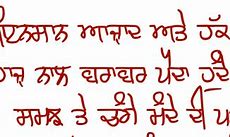 ਇਨਸਾਨ ਆਜ਼ਾਦ ਅਤੇ ਹੱਕ
ਨਾਲ ਬਰਾਬਰ ਪੈਦਾ ਹੁੰਦੇ
ਸਮਝ ਤੇ ਚੰਗੇ ਮੰਦੇ ਦੀ ਪ